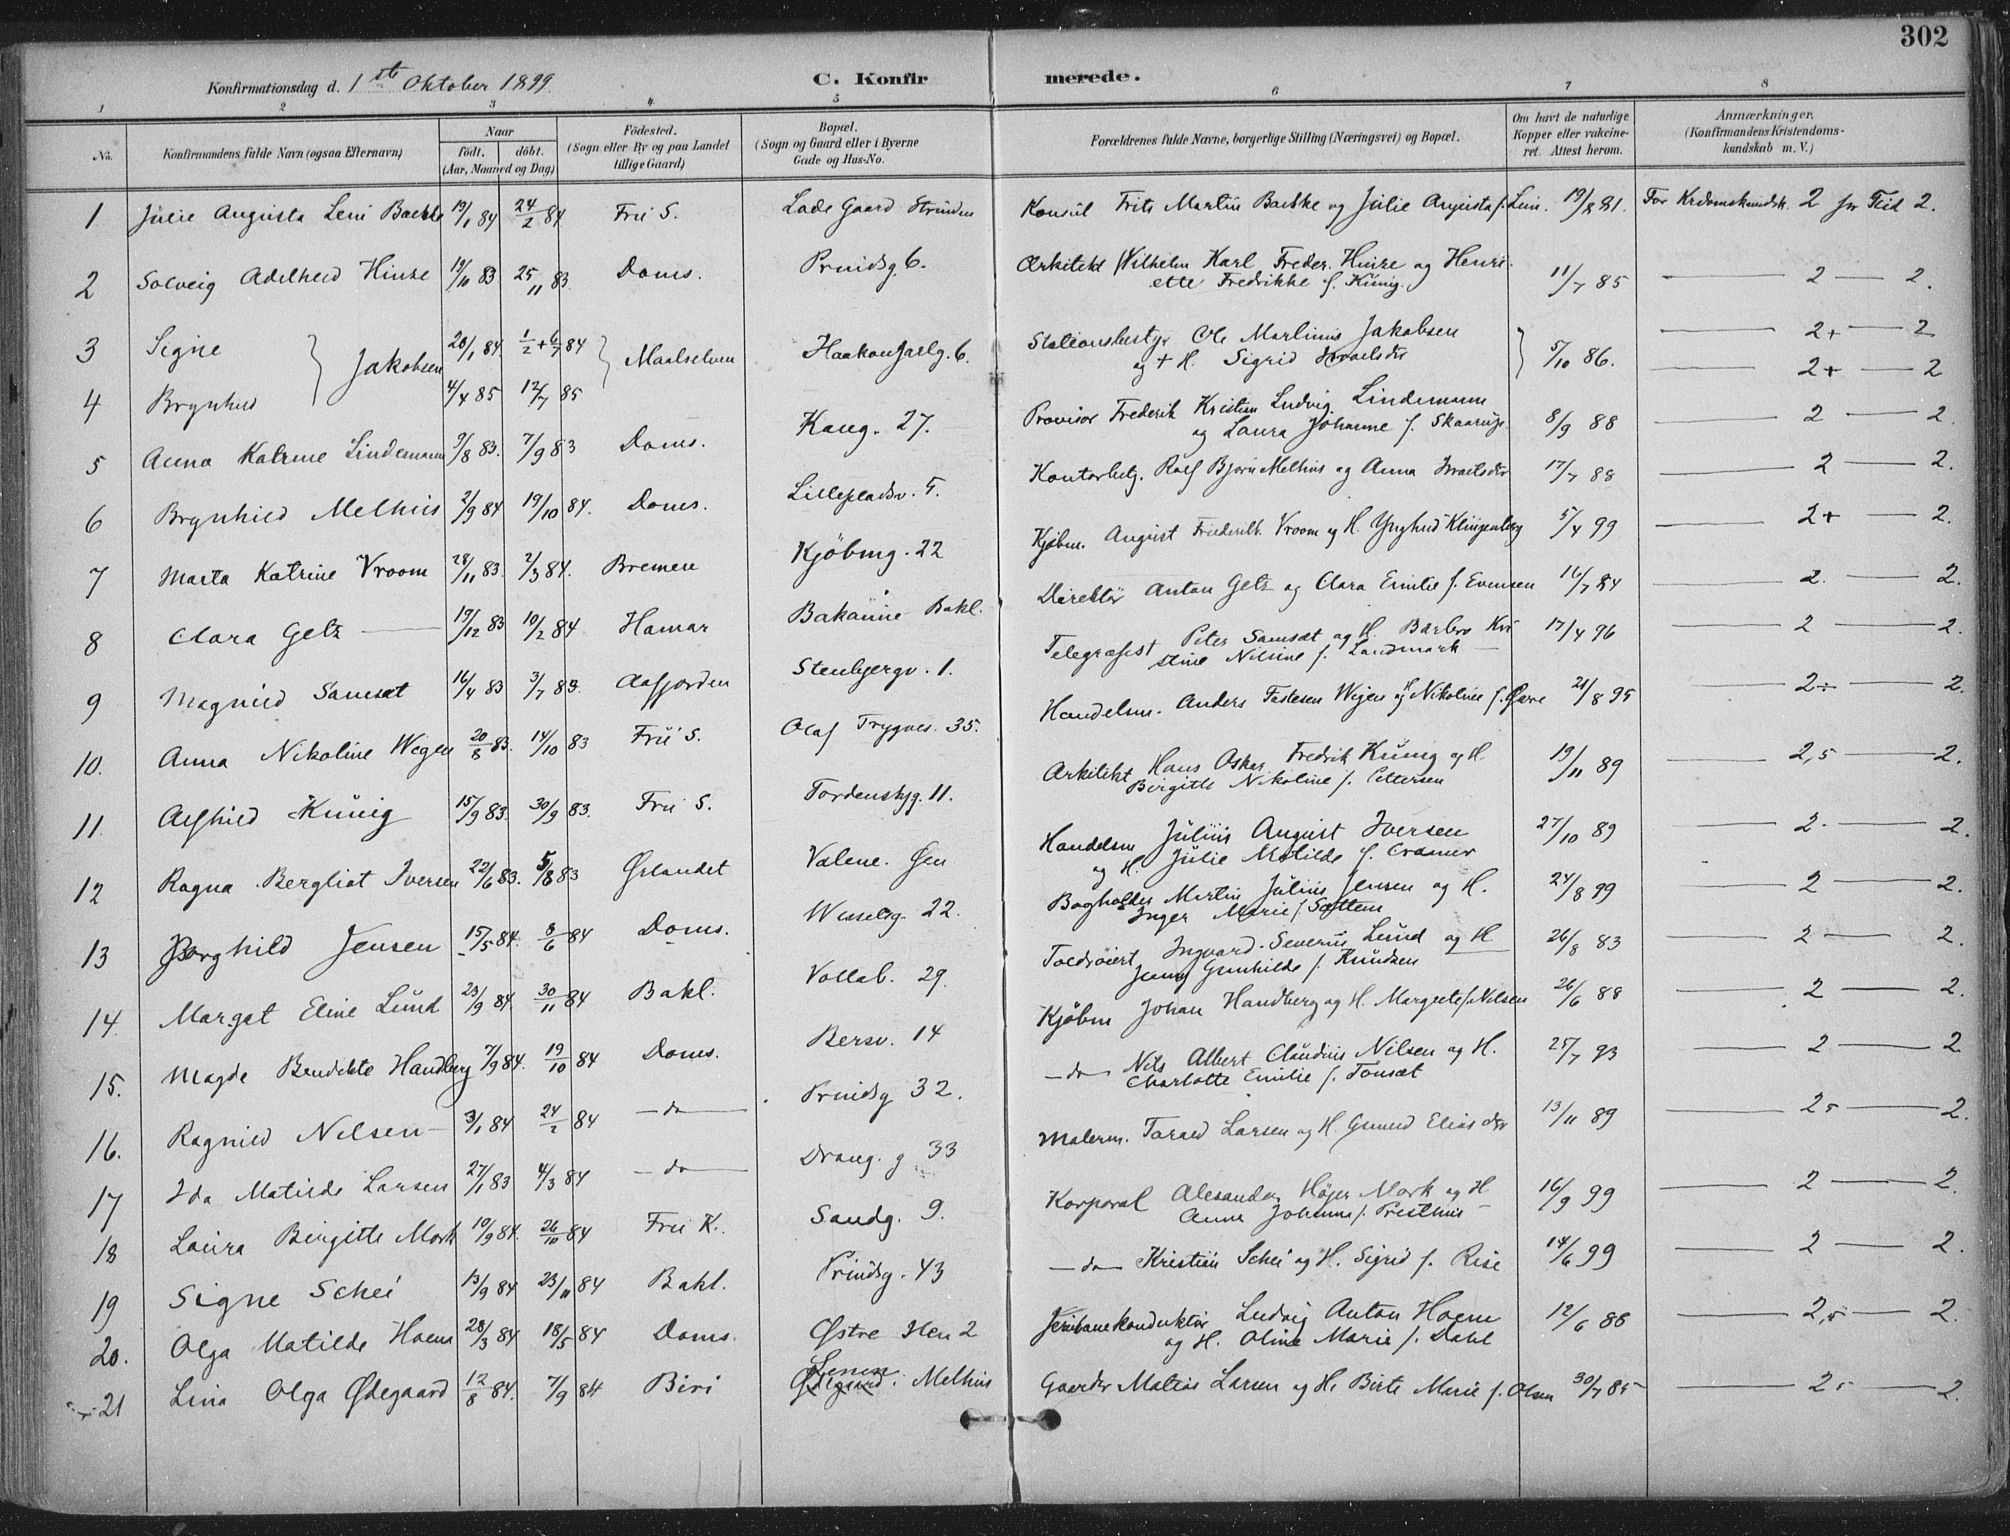 302
Konfirmationsdag d. 1ste Oktober 1899. C. Konfirmerede.
1 2 3 4 5 6 7 8
No. Konfirmandens fulde Navn (ogsaa Efternavn) Naar födt. döbt. (Aar, Maaned og Dag) Födested. (Sogn eller By og paa Landet tillige Gaard) Bopæl. (Sogn og Gaard eller i Byerne Gade og Hus-No. Forældrenes fulde Navne, borgerlige Stilling (Næringsvei) og Bopæl. Om havt de naturlige Kopper eller vakcineret. Attest herom. Anmærkninger. (Konfirmandens Kristendomskundskab m. V.)
1 Julie Augusta Leni Bachke 19/1 84 24/2 84 Frue S. Lade Gaard Strinden Konsul Frits Martin Bachke og Julie Augusta f. Leni. For Krdomskundsk. 2 for Flid 2.
2 Solveig Adelheid Hinze 19/10 83 25/11 83 Doms. Prindsg. 6. Arkitekt Wilhelm Karl Freder. Hinze og Henriette Fredrikke f. Kunig. 11/7 85 2 2.
3 Signe } Jakobsen 28/1 84 1/2 + 6/7 84 } Maalselven Haakon Jarlg. 6. Stationsbestyr Ole Martinus Jakobsen og + H. Sigrid Israelsdtr } 5/10 86. 2+ 2
4 Brynhild 4/4 85 12/7 85 2+ 2
5 Anna Katrine Lindemann 9/8 83. 7/9 83 Doms. Kong. 27. Provisor Frederik Kristian Ludvig Lindemann og Laura Johanne f. 8/9 88 2 2.
6 Brynhild Melhus 2/9 84 19/10 84. Doms. Kontorbetj. Rolf Bjørn Melhus og Anna Israelsdtr 17/7 88 2 2.
7 Marta Katrine Vroom 28/11 83. 2/3 84. Bremen Kjöbmg. 22 Kjöbm. August Friederik Vroom og H. Klingenberg 5/4 99 2+ 2.
8 Clara Getz 19/12 83 10/2 84 Hamar Bakaune Bakl. Direktör Anton Getz og Clara Emilie f. Evensen 16/7 84 2. 2.
9 Magnild Samsæt 16/4 83 3/7 83 Aafjorden Stenbjergv. 1. Telegrafist Peter Samsæt og H. Barbro Kristine Nilsine f. Landmark 17/4 96 2 2.
10. Anna Nikoline Wegen 20/8 83. 14/10 83 Frue S. Olaf Trygves. 35. Handelsm. Anders Wegen og Nikoline f. 21/8 95 2÷ 2.
11. Alfhild Kunig 15/9 83. 30/9 83. Frue S. Tordenskjg. 11. Arkitekt Hans Oskar Fredrik Kunig og H. Birgitte Nikoline f. Pettersen 19/11 89 2,5 2.
12 Ragna Bergliot Iversen 22/6 83. 5/8 83 Ørlandet Valene. Øen Handelsm Julius August Iversen og H. Julie Matilde f. Cramer 27/10 89 2. 2.
13 Borghild Jensen 15/5 84. 8/6 84 Doms. Wesselsg. 22. Bogholder Martin Julius Jensen og H. Inger Marie f. Sættem 24/8 99 2 2.
14. Margot Eline Lund 23/9 84. 30/11 84 Bakl. Vollab. 29. Ingvard Severin Lund og H. Jenny Gunhilde f. Knudsen 26/8 83 2 2.
15. Magda Bendikte Handberg 7/9 84. 19/10 84 Doms. Bersv. 14 Kjöbm Johan Handberg og H. Margrete f. Nilsen 26/6 88 2 2.
16. Ragnild Nilsen 3/1 84 24/2 84 do Prindsg 32. do Nils Albert Claudius Nilsen og H. Charlotte Emilie f. Tönsæt 25/7 93 2 2
17 Ida Matilde Larsen 27/1 83 4/3 84 do Drong. g 33 Malerm. Larsen og H. Elias dtr 13/11 89 2÷ 2.
18 Laura Birgitte Mork 10/9 84. 26/10 84 Frue K. Sandg. 9. Korporal Alexander Höjer Mork og H Anna Johanna f. Presthus 16/9 99 2 2.
19 Signe Schei 13/9 84 23/11 84 Bakl. Prindsg. 43 do Kristian Schei og H. Sigrid f. Rise 14/6 99 2 2.
20. Olga Matilde Hoem 28/3 84 18/5 84 Doms. Østre Ilen 2 Jernbanekonduktör Ludvig Anton Hoem og H. Oline Marie f. Dahl 12/6 86 2,5 2.
21 Lina Olga Ødegaard 12/8 84. 7/9 84 Biri Melhus Gaardbr Matias Larsen og H. Birte Marie f. Olsen 30/7 85 2÷ 2.